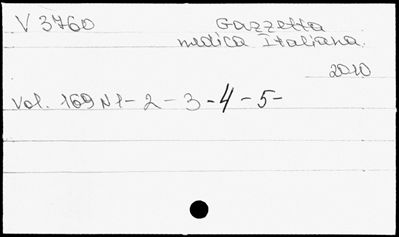 V 3760 Gazzetta
medica Italiana.
2010
Vol. 169 N 1 - 2 - 3 - 4 - 5 -